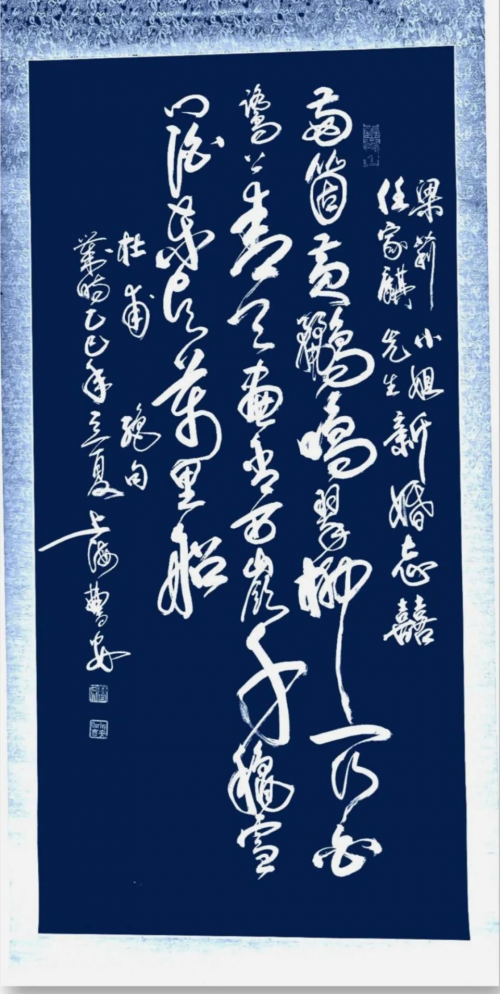 梁莉小姐
任家麒先生新婚志囍
兩箇黃鸝鳴翠柳一行白
鷺上青天窗含西嶺千穐雪
門泊東吳萬里船
杜甫 絕句
時乙巳年立夏上海曹